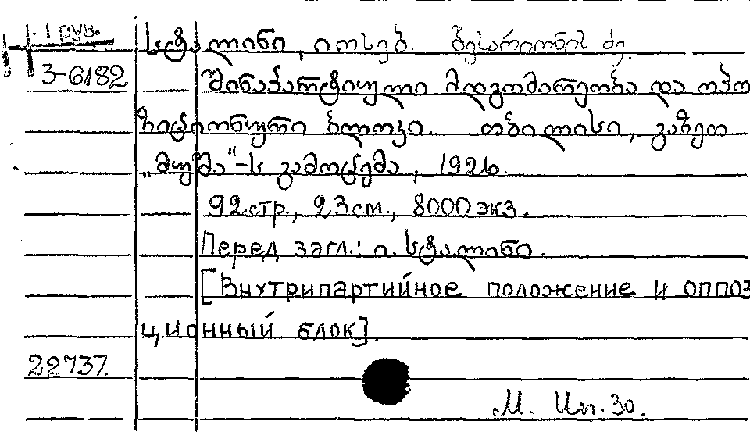 1 груз.
სტალინი, იოსებ ბესარიონის ძე.
3-6182
შინაპარტიული მდგომარეობა და ოპო
ზიციონური ბლოკი. თბილისი, გაზეთ
„მუშა"-ს გამოცემა, 1926.
92 стр., 23 см., 8000 экз.
Перед загл.: ი. სტალინი.
[Внутрипартийное положение и оппоз
ционный блок]
22737.